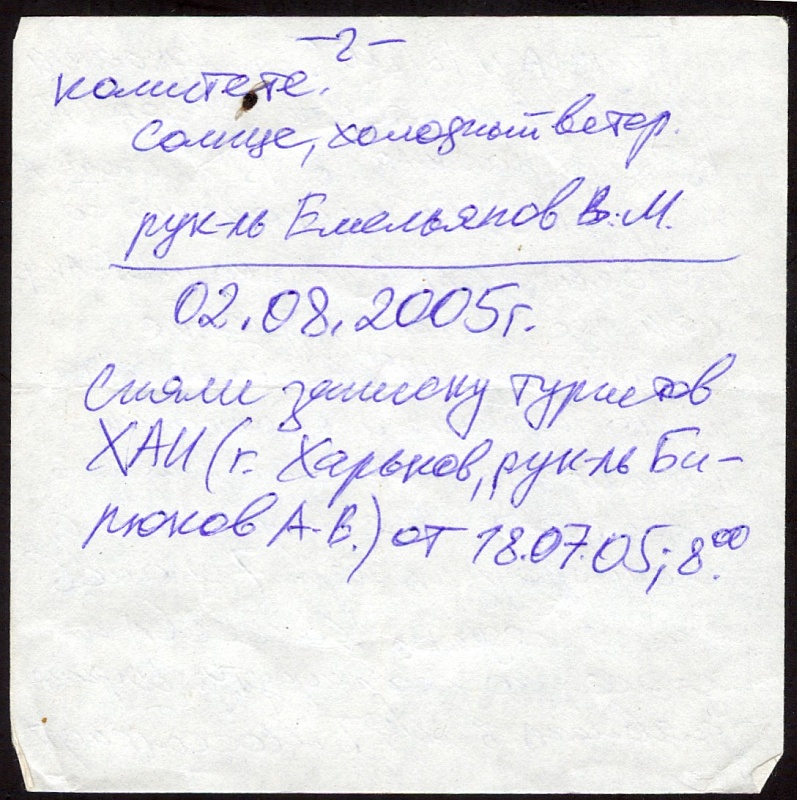 -2-
комитете.
Солнце, холодный ветер.
рук-ль Емельянов В.М.
02.08.2005г.
Сняли записку туристов
ХАИ (г. Харьков, рук-ль Би-
рюков А.В.) от 18.07.05; 8⁰⁰.